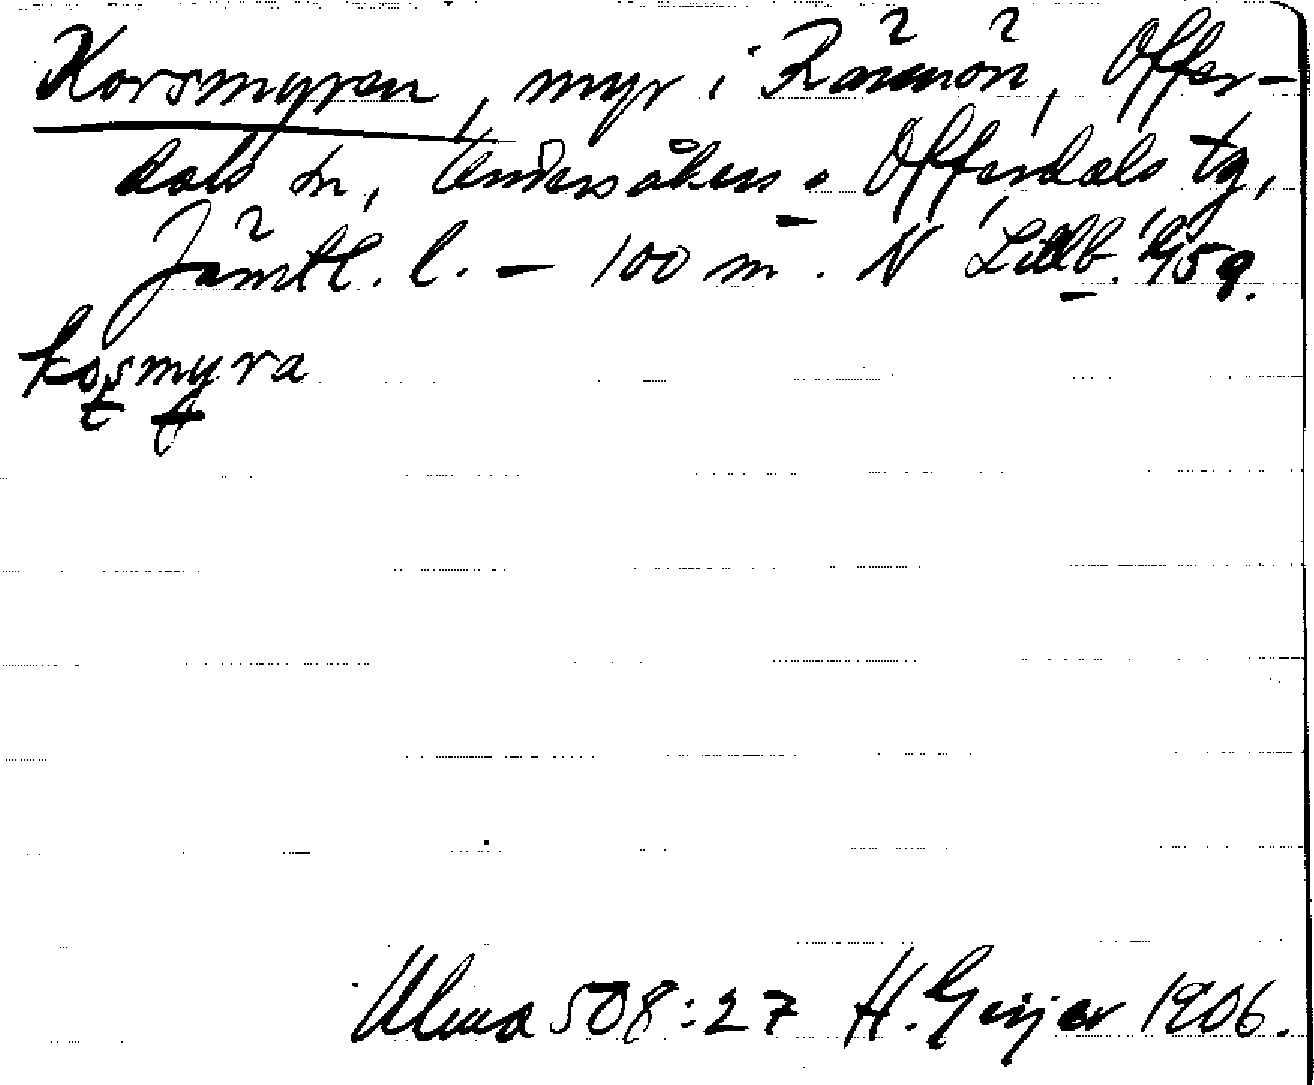 Korsmyren, myr i Rännön, Offer-
dals sn, Undersåkers o Offerdals tg,
Jämtl. l. – 100 m. N
kosmyra
Ulma 508:27 H. Geijer 1906.